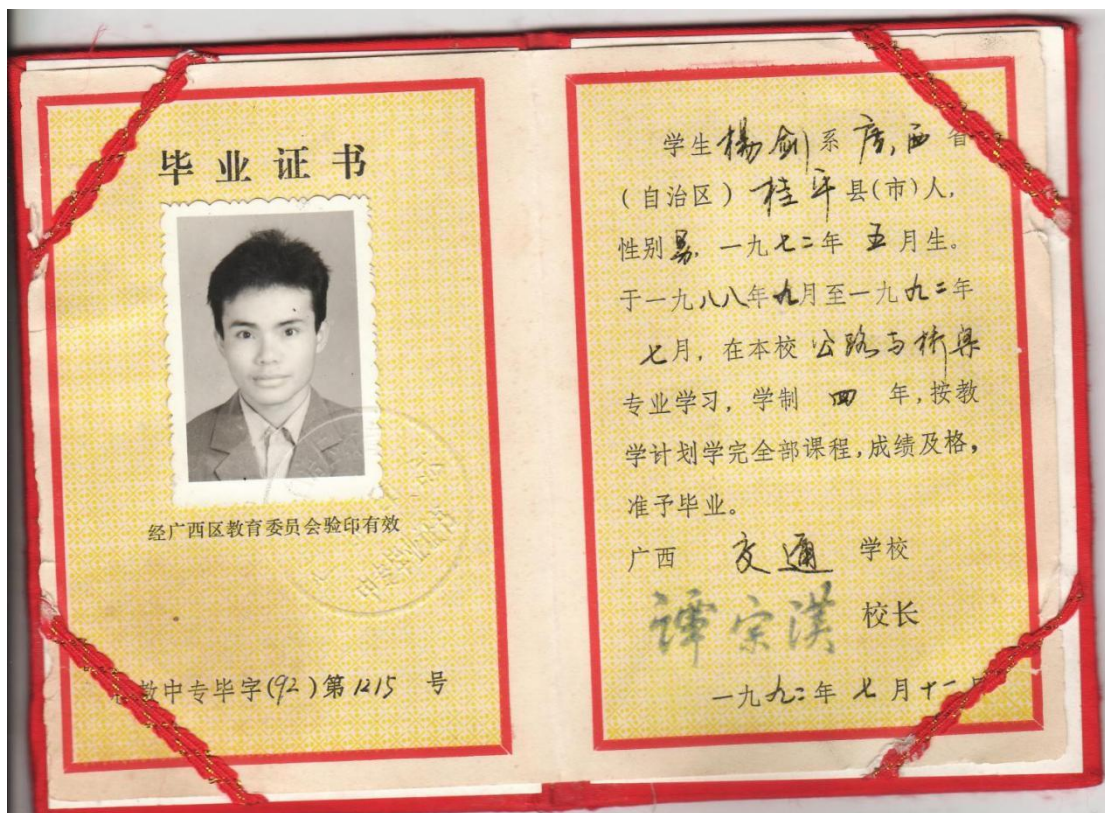 毕业证书
经广西区教育委员会验印有效
中专毕业证书
教中专毕字(92)第1215 号
学生楊剑系 广西省
(自治区) 桂平县(市)人,
性别男, 一九七二年 五月生。
于一九八八年九月至一九九二年
七月, 在本校 公路与桥梁
专业学习, 学制 四 年, 按教
学计划学完全部课程, 成绩及格,
准予毕业。
广西 交通 学校
譚宗漢 校长
一九九二年 七月十一日